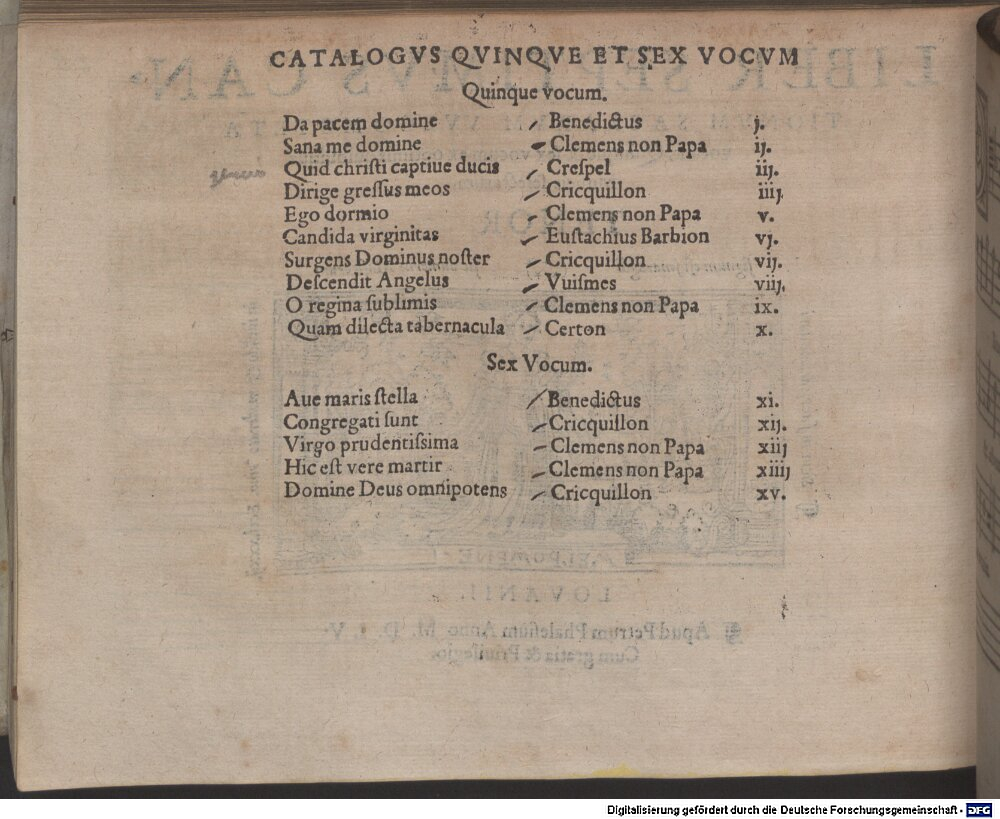 CATALOGVS QVINQVE ET SEX VOCVM
Quinque vocum.
Da pacem domine Benedictus j.
Sana me domine Clemens non Papa ij.
Quid chriſti captiue ducis Creſpel iij.
Dirige greſſus meos Cricquillon iiij.
Ego dormio Clemens non Papa v.
Candida virginitas Euſtachius Barbion vj.
Surgens Dominus noſter Cricquillon vij.
Deſcendit Angelus Vuiſmes viij.
O regina ſublimis Clemens non Papa ix.
Quam dilecta tabernacula Certon x.
Sex Vocum.
Aue maris ſtella Benedictus xi.
Congregati ſunt Cricquillon xij.
Virgo prudentiſsima Clemens non Papa xiij
Hic eſt vere martir Clemens non Papa xiiij
Domine Deus omnipotens Cricquillon xv.
LOVANII.
Apud Petrum Phaleſium Anno M. D. LV.
Cum gratia & Priuilegio.
Digitalisierung gefördert durch die Deutsche Forschungsgemeinschaft - DFG